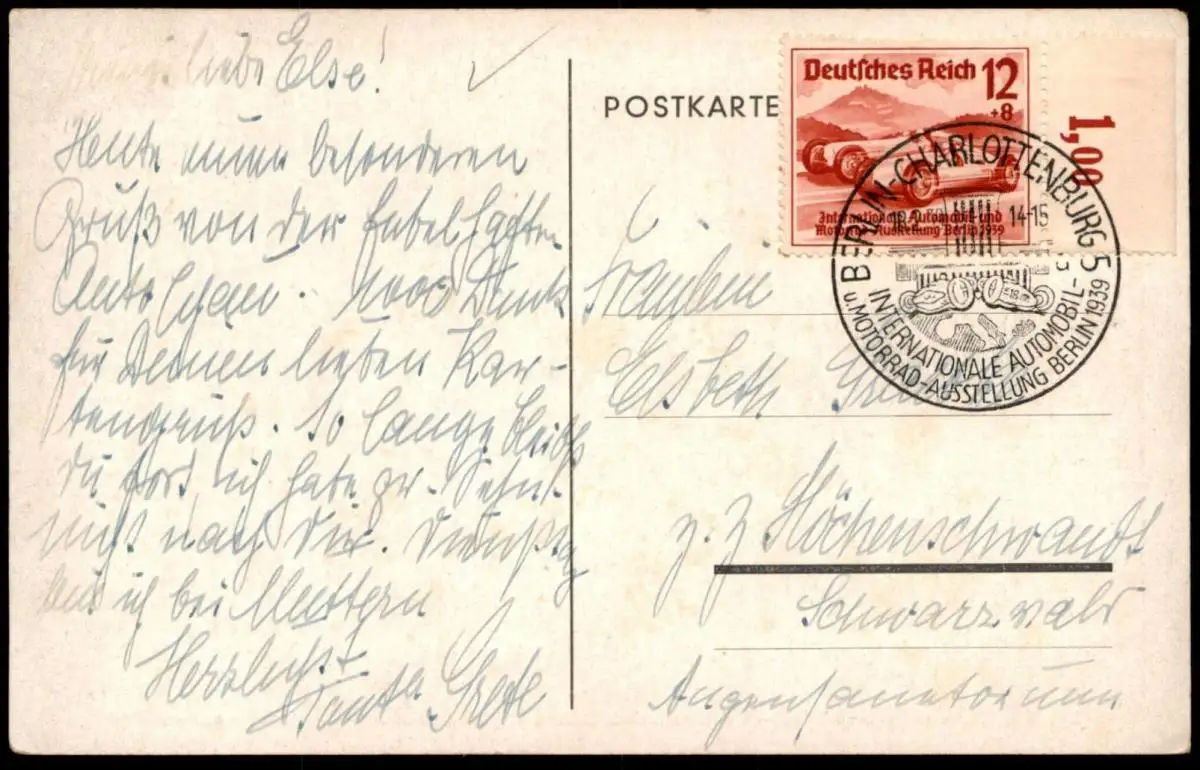 liebe Else!
Heute einen besonderen
Gruß von der fabelhaften
Dank
für Deinen lieben Kar-
tengruß. So lange bleibst
du fort, ich habe gr. Sehn-
nach Dir. Dienstag
bin ich bei Muttern
Herzlichst
Tante Grete
POSTKARTE
Deutsches Reich 12
+8
Internationale Automobil- und
Motorrad-Ausstellung Berlin 1939
1,00
BERLIN-CHARLOTTENBURG 5
14-15
INTERNATIONALE AUTOMOBIL-
u. MOTORRAD-AUSSTELLUNG BERLIN 1939
Fräulein
Elsbeth
z. Z. Höchenschwandt
Schwarzwald
Augensanatorium